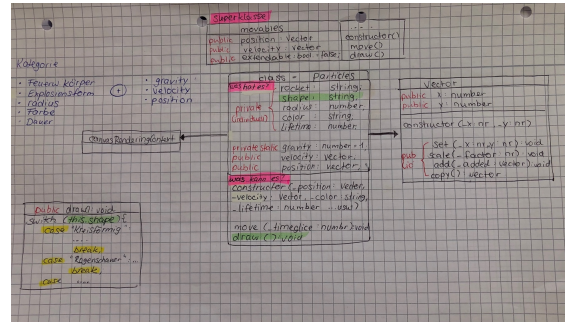 Superklasse
movables
public position: vector
public velocity: vector
public extendable: bool = false,
.....
constructor()
move()
draw()
Kategorie
• Feuerw. körper
• Explosionsform
• radius
• Farbe
• Dauer
+
• gravity
• velocity
• position
class - Particles
was hat es?
rocket : string,
shape : string,
private
(random)
radius : number,
color : string,
lifetime : number,
private static gravity : number = 1,
public velocity : vector,
public position : vector,
was kann es?
constructor (_position : vector,
-velocity : vector, -color : string,
-lifetime : number ... usw)
move (_timeslice : number) void
draw () : void
canvasRenderingContext
Vector
public x : number
public y : number
constructor (-x : nr, -y : nr)
public
set (-x : nr, y : nr) : void
scale (- factor : nr) : void
add (- added : vector) : void
copy() : vector
public draw() : void
Switch (this.shape) {
case "Kreisförmig"
.....
break;
case "Regenschauer" ...
break;
case ....